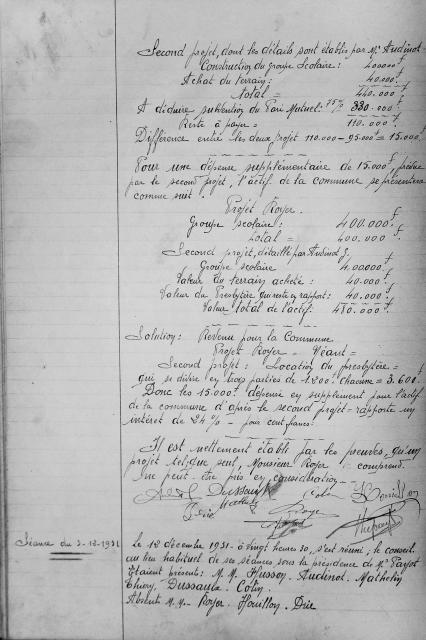 Second projet, dont les détails sont établis par Mr Audinot =
Construction du groupe Scolaire : 400000f
Achat du terrain : 40.000f
Total = 440.000f
A déduire subvention du Pari Mutuel : 75% 330.000f
Reste à payer = 110.000f
Différence entre les deux projet 110.000 - 95.000f = 15.000f
Pour une dépense supplémentaire de 15.000f,
par le second projet, l'actif de la commune se présentera
comme suit :
Projet Royer.
Groupe scolaire : 400.000f
Total = 400.000f.
Second projet, détaillé par Audinot G.
Groupe scolaire 400.000f
Valeur du terrain acheté : 40.000f
Valeur du Presbytère qui reste en rapport : 40.000f
Valeur total de l'actif : 480.000f.
Solution : Revenu pour la Commune
Projet Royer = Néant =
Second projet : Location du presbytère =
qui se divise en trois parties de 1.200f chacune = 3.600f
Donc les 15.000f dépensé en supplément pour l'actif
de la commune d'après le second projet = rapporte un
intérêt de 24% - pour cent francs.
Il est nettement établi par les preuves, qu'un
projet tel que seul, Monsieur Royer le comprend.
Ne peut être pris en considération -
Dussaulx
Mathelin
Colin
Séance du 5-12-1931
Le 12 décembre 1931 - à vingt heures 30, s'est réuni, le conseil
au lieu habituel de ses séances sous la présidence de Mr
Etaient présents : M.M. Husson. Audinot. Mathelin
Thiery, Dussaulx. Colin
Absents M.M. Royer. Houillon.